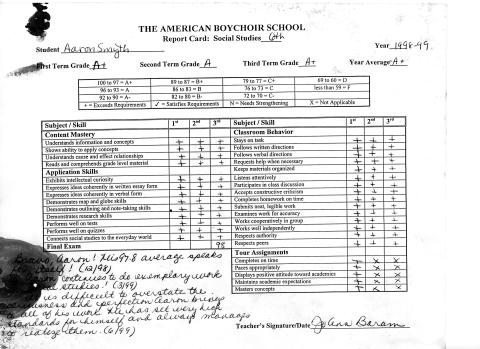 THE AMERICAN BOYCHOIR SCHOOL
Report Card: Social Studies 6th
Student Aaron Smyth Year 1998-99
First Term Grade A+ Second Term Grade A Third Term Grade A+ Year Average A+
100 to 97 = A+ 89 to 87 = B+ 79 to 77 = C+ 69 to 60 = D
96 to 93 = A 86 to 83 = B 76 to 73 = C less than 59 = F
92 to 90 = A- 82 to 80 = B- 72 to 70 = C-
+ = Exceeds Requirements ✓ = Satisfies Requirements N = Needs Strengthening X = Not Applicable
Subject / Skill 1st 2nd 3rd
Content Mastery
Understands information and concepts + + +
Shows ability to apply concepts + + +
Understands cause and effect relationships + + +
Reads and comprehends grade level material + + +
Application Skills
Exhibits intellectual curiosity + + +
Expresses ideas coherently in written essay form + + +
Expresses ideas coherently in verbal form + + +
Demonstrates map and globe skills + + +
Demonstrates outlining and note-taking skills + + +
Demonstrates research skills + + +
Performs well on tests + + +
Performs well on quizzes + + +
Connects social studies to the everyday world + + +
Final Exam 98
Subject / Skill 1st 2nd 3rd
Classroom Behavior
Stays on task + + +
Follows written directions + + +
Follows verbal directions + + +
Requests help when necessary + + +
Keeps materials organized + + +
Listens attentively + + +
Participates in class discussion + + +
Accepts constructive criticism + + +
Completes homework on time + + +
Submits neat, legible work + + +
Examines work for accuracy + + +
Works cooperatively in group + + +
Works well independently + + +
Respects authority + + +
Respects peers + + +
Tour Assignments
Completes on time + X X
Paces appropriately + X X
Displays positive attitude toward academics + X X
Maintains academic expectations + X X
Masters concepts + X X
Bravo, Aaron! His 97.8 average speaks
itself! (12/98)
continues to do exemplary work
studies! (3/99)
is difficult to overstate the
and perfection Aaron brings
all of his work. He has set very high
standards for himself and always manages
to realize them. (6/99)
Teacher's Signature/Date JoAnn Baram